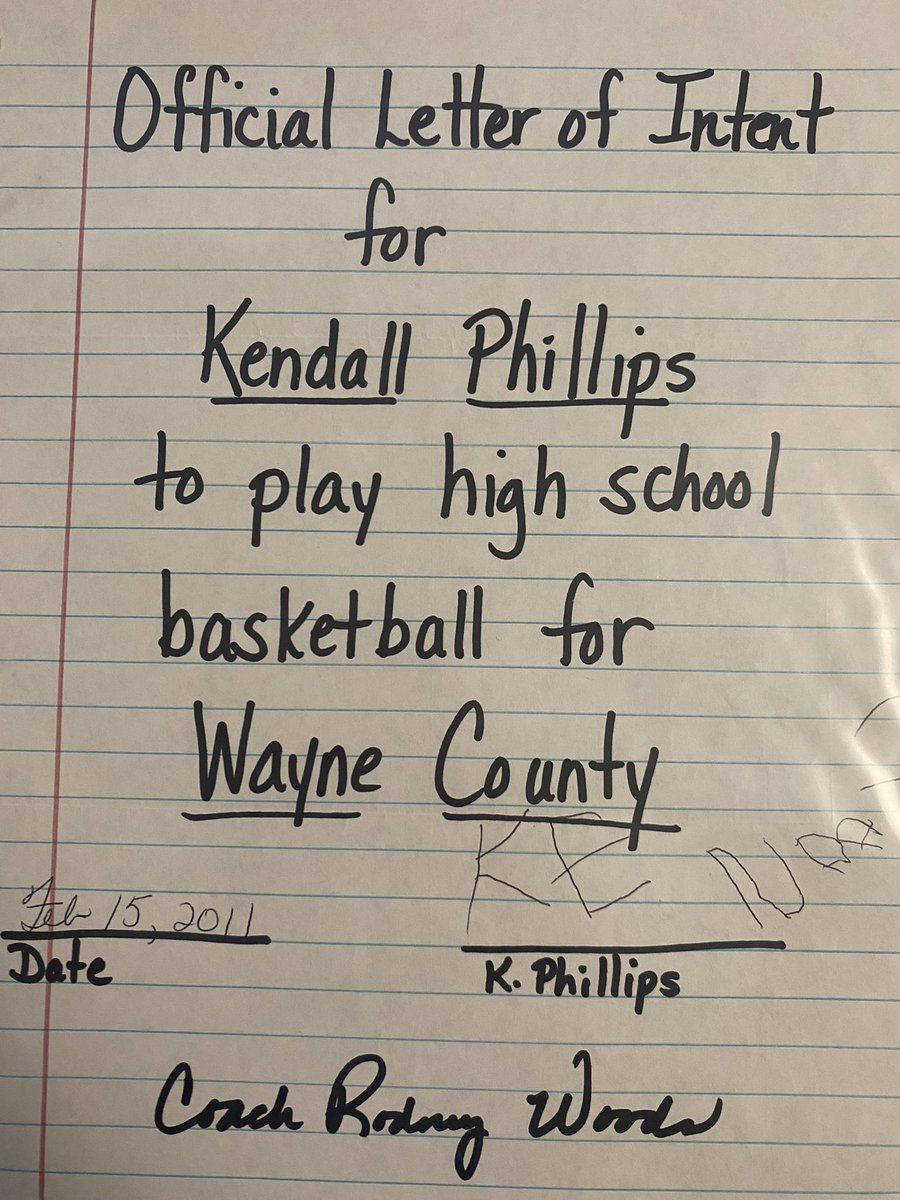 Official Letter of Intent
for
Kendall Phillips
to play high school
basketball for
Wayne County
KE
Feb 15, 2011
Date
K. Phillips
Coach Rodney Woods